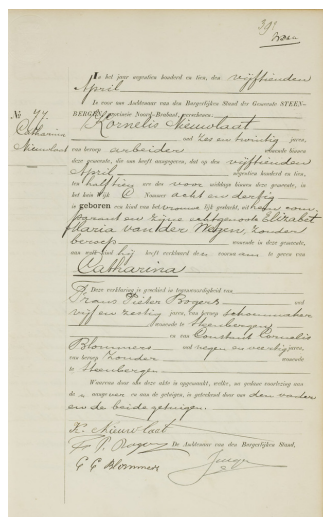 In het jaar negentien honderd en tien, den vijftienden
April
is voor ons Ambtenaar van den Burgerlijken Stand der Gemeente STEEN-
BERGEN, provincie Noord-Brabant, verschenen:
No 77
Catharina
Nieuwlaat
Kornelis Nieuwlaat
oud zes en twintig jaren,
van beroep arbeider wonende binnen
deze gemeente, die ons heeft aangegeven, dat op den vijftienden
April negentien honderd en tien,
ten half tien ure des voor middags binnen deze gemeente, in
het huis Wijk C Nummer acht en dertig
is geboren een kind van het vrouwelijk geslacht, uit hem com-
parant en zijne echtgenoote Elizabet
Maria van der Wegen, zonder
beroep wonende in deze gemeente,
aan welk kind hij heeft verklaard den voornaam te geven van
Catharina
Deze verklaring is geschied in tegenwoordigheid van
Frans Pieter Bogers oud
vijf en zestig jaren, van beroep schoenmaker
wonende te Steenbergen
en van Constant Cornelis
Blommers oud negen en veertig jaren,
van beroep zonder wonende
te Steenbergen
Waarvan door ons deze akte is opgemaakt, welke, na gedane voorlezing aan
de aangever en aan de getuigen, is geteekend door ons den vader
en de beide getuigen.
K. Nieuwlaat
F. P. Bogers
De Ambtenaar van den Burgerlijken Stand,
C C Blommers